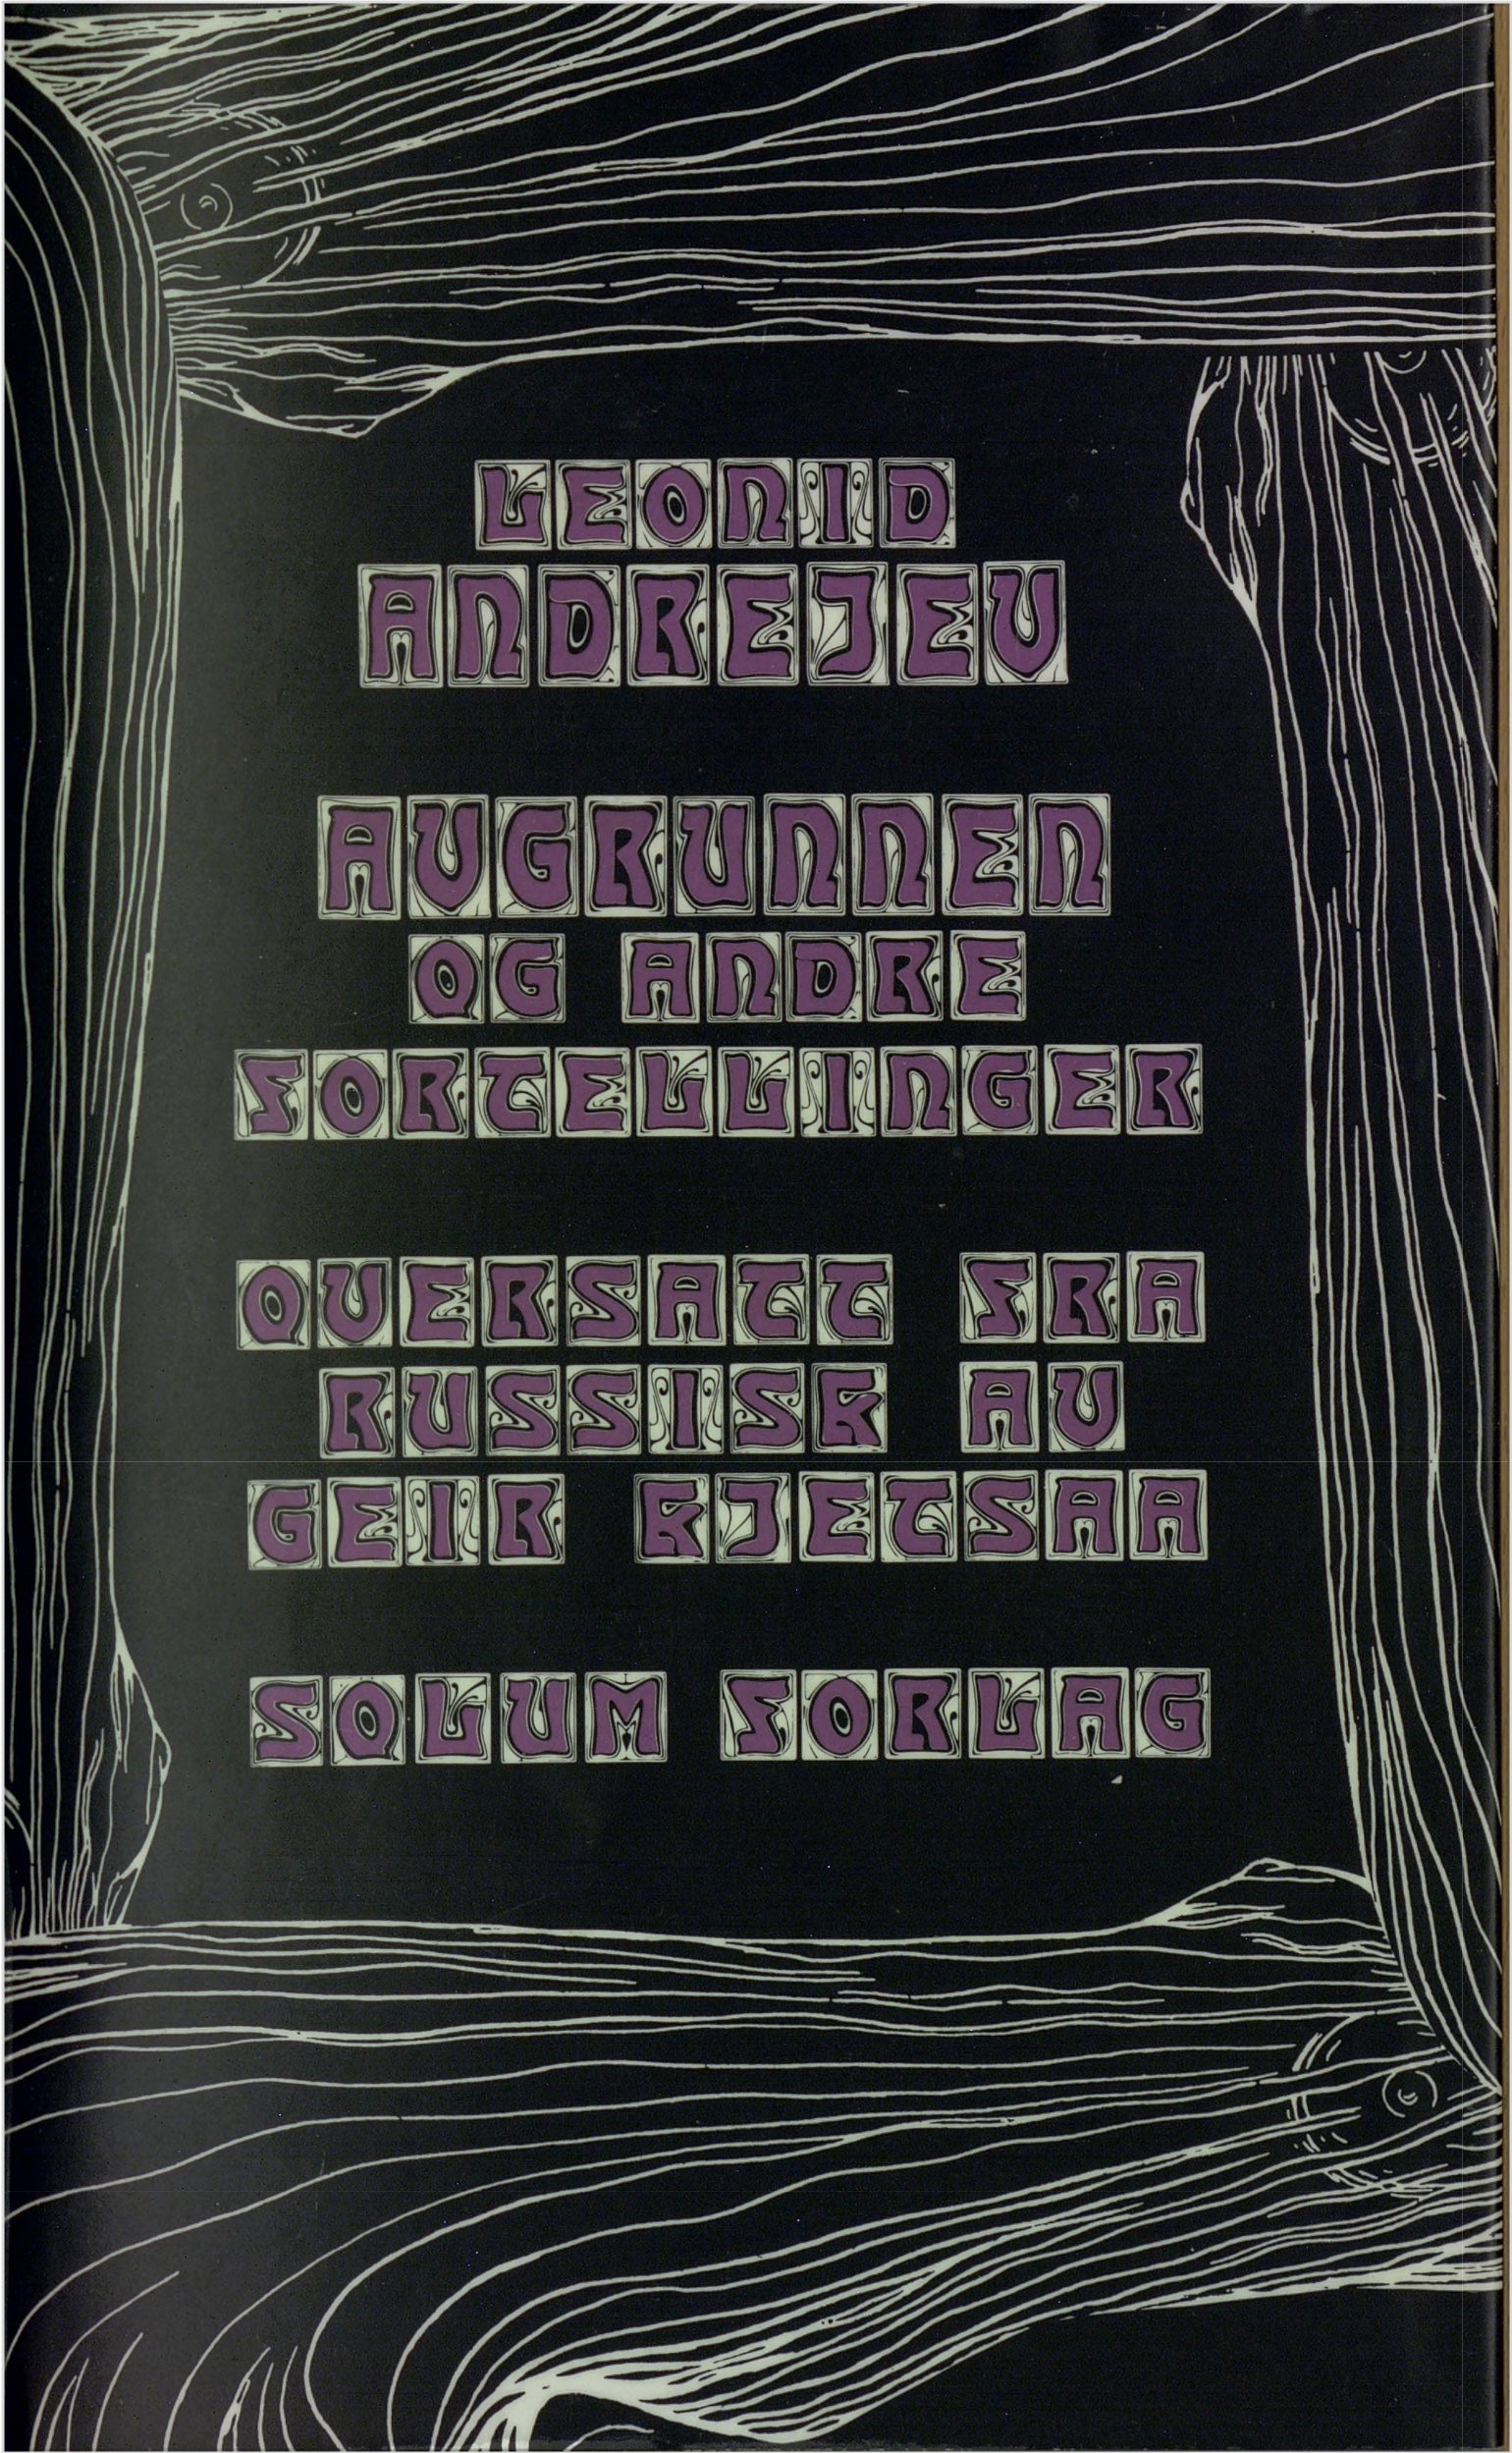 LEONID
ANDREJEV
AVGRUNNEN
OG ANDRE
FORTELLINGER
OVERSATT FRA
RUSSISK AV
GEIR KJETSAA
SOLUM FORLAG